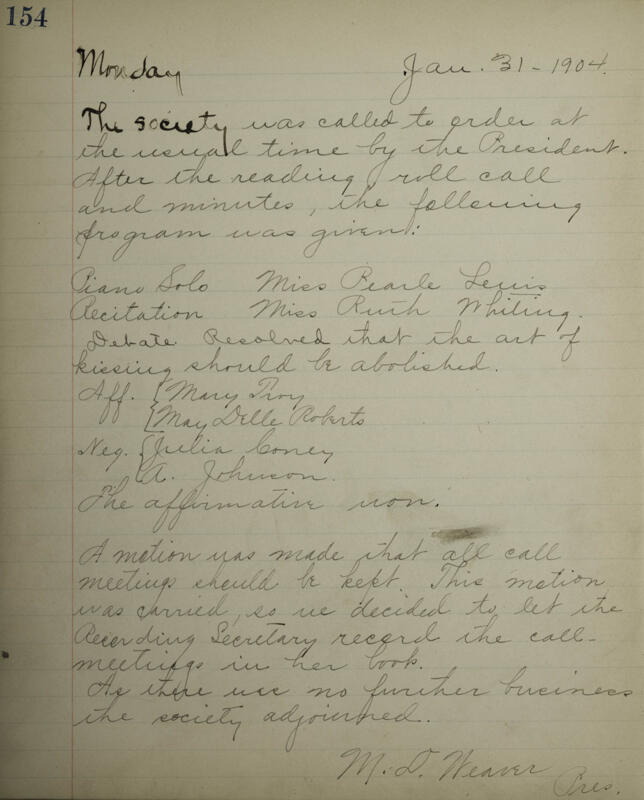 154
Monday Jan. 31 - 1904.
The society was called to order at
the usual time by the President.
After the reading, roll call
and minutes, the following
program was given:
Piano Solo Miss Pearle Lewis
Recitation Miss Ruth Whiting.
Debate Resolved that the art of
kissing should be abolished.
Aff. { Mary Troy
{ May Delle Roberts
Neg. { Julia Coney
A. Johnson.
The affirmative won.
A motion was made that all call
meetings should be kept. This motion
was carried, so we decided to let the
Recording Secretary record the call-
meetings in her book.
As there was no further business
the society adjourned.
M. D. Weaver
Pres.